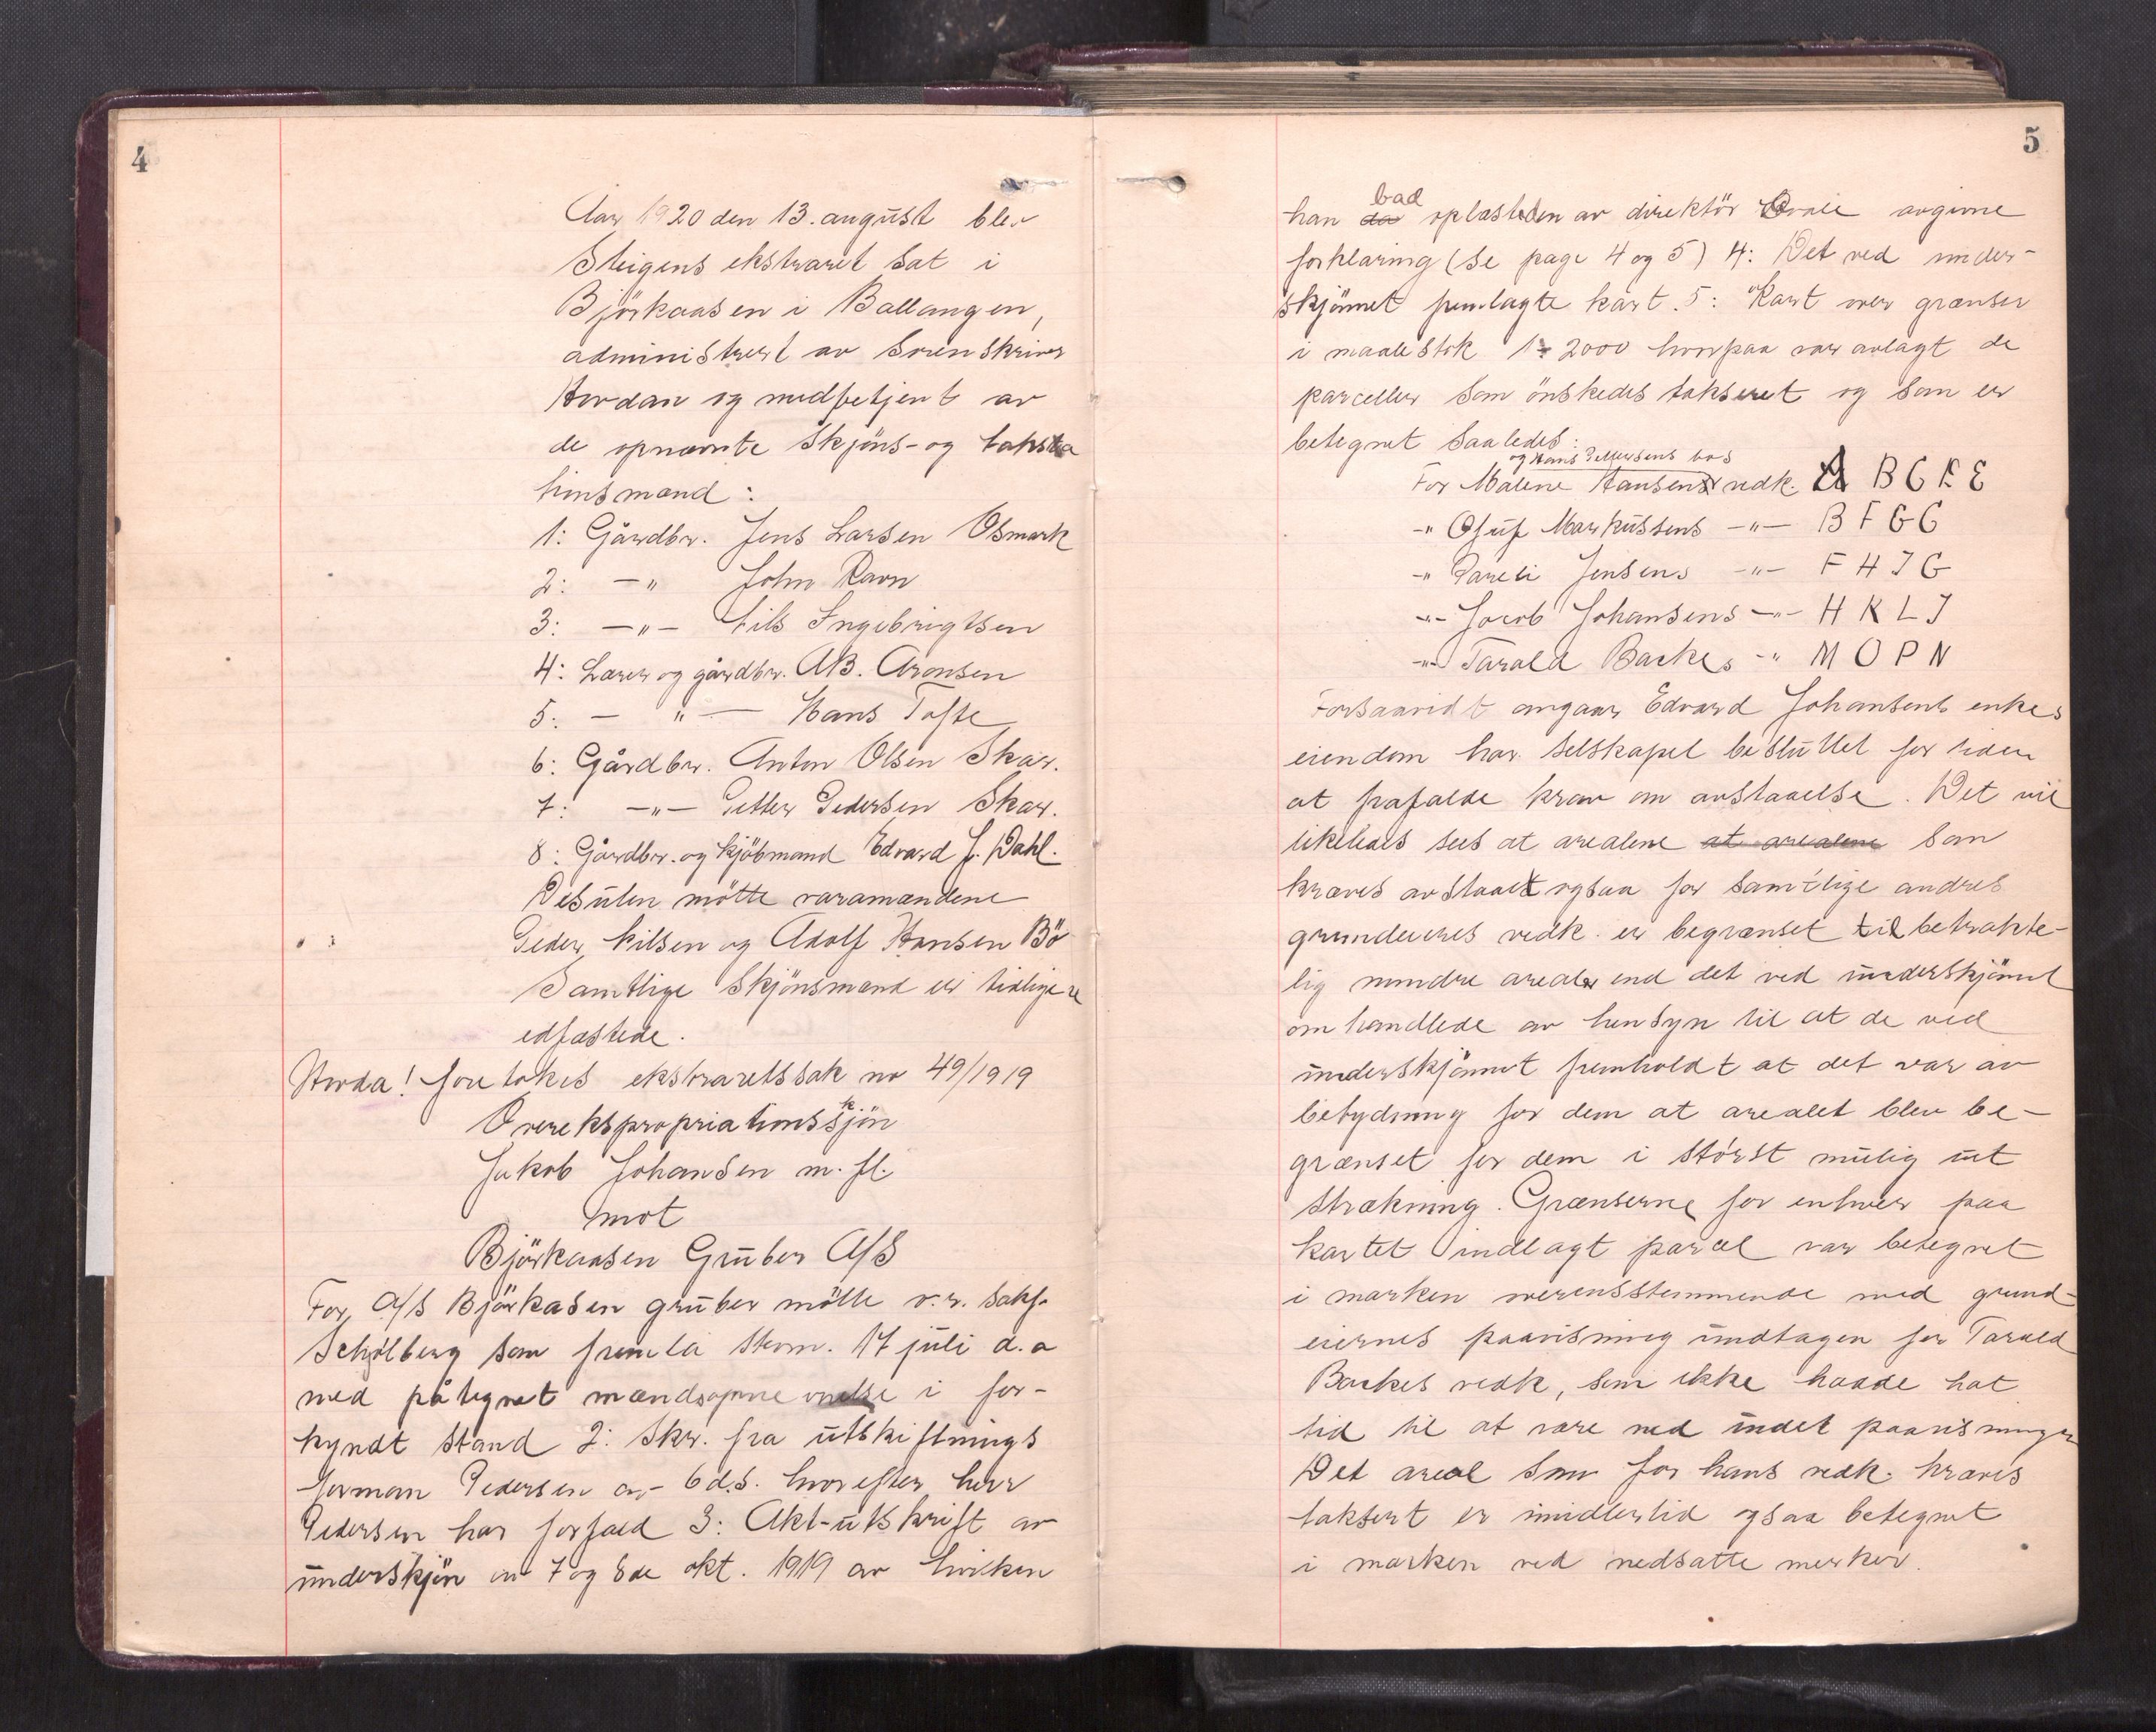 4
Aar 1920 den 13. august blev
Steigens ekstraret sat i
Björkaasen i Ballangen,
administrert av Sorenskriver
Hordan og medbetjent av
de opnævnte skjöns- og takst
tinsmænd:
1: Gårdbr. Jens Larsen Osmark
2: -"- John Ravn
3: -"- Nils Ingebrigtsen
4: Lærer og gårdbr. AB. Aronsen
5: - " - Hans Tofte
6: Gårdbr. Anton Olsen Skar.
7: -"- Petter Pedersen Skar.
8: Gårdbr. og kjöbmand Edvard J. Dahl.
Desuten mötte varamændene
Peder Nilsen og Adolf Hansen Bö
Samtlige skjönsmænd er tidligere
edfæstede.
Hvorda! foretokes ekstraretssak no 49/1919
Overekspropriationsskjön
Jakob Johansen m. fl.
mot
Björkaasen Gruber A/S
For A/S Björkåsen gruber mötte o.r. sakf.
Schjølberg som fremla stevn. 17 juli d.a
med påtegnet mændsopnævnelse i for-
kyndt stand 2: Skr. fra utskiftnings
forman Pedersen av 6 d.s. hvorefter herr
Pedersen har forfald 3: Akt-utskrift av
underskjön av 7 og 8de okt. 1919 av hvilken
5
han da bad oplæst den av direktör Qvale avgivne
forklaring (se page 4 og 5) 4: Det ved under-
skjönnet fremlagte kart. 5: Kart over grænser
i maalestok 1:2000 hvorpaa var avlagt de
parceller som önskedes taksert og som er
betegnet saaledes:
og Hans Pettersens bos
For Malene Hansens vedk. A B C K E
-" Oluf Markussens -"- B F G C
-" Pareli Jensens -"- F H J G
-"- Jacob Johansens -"- H K L J
-"- Tarald Backes -"- M O P N
Forsaavidt angaar Edvard Johansens enkes
eiendom har selskapet besluttet for tiden
at frafalde krav om avstaaelse. Det vil
likeledes sees at arealene at arealene som
kræves avstaat ogsaa for samtlige andres
grundeieres vedk. er begrænset til betrakte-
lig mindre arealer end det ved underskjönnet
omhandlede av hensyn til at de ved
underskjönnet fremholdt at det var av
betydning for dem at arealet blev be-
grænset for dem i störst mulig ut
strækning. Grænserne for enhver paa
kartet indlagt parcel var betegnet
i marken overensstemmende med grund-
eiernes paavisning undtagen for Tarald
Backes vedk, som ikke hadde hat
tid til at være med under paavisningen
Det areal som for hans vedk. kræves
taksert er imidlertid ogsaa betegnet
i marken ved nedsatte merker.